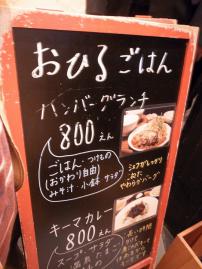 おひるごはん
ハンバーグランチ
800えん
ごはん・つけもの
(おかわり自由)
みそ汁・小鉢 サラダ
シェフがしっかり
こねた
やわらかバーグ
キーマカレー
800えん
スープ・サラダ
長い時間